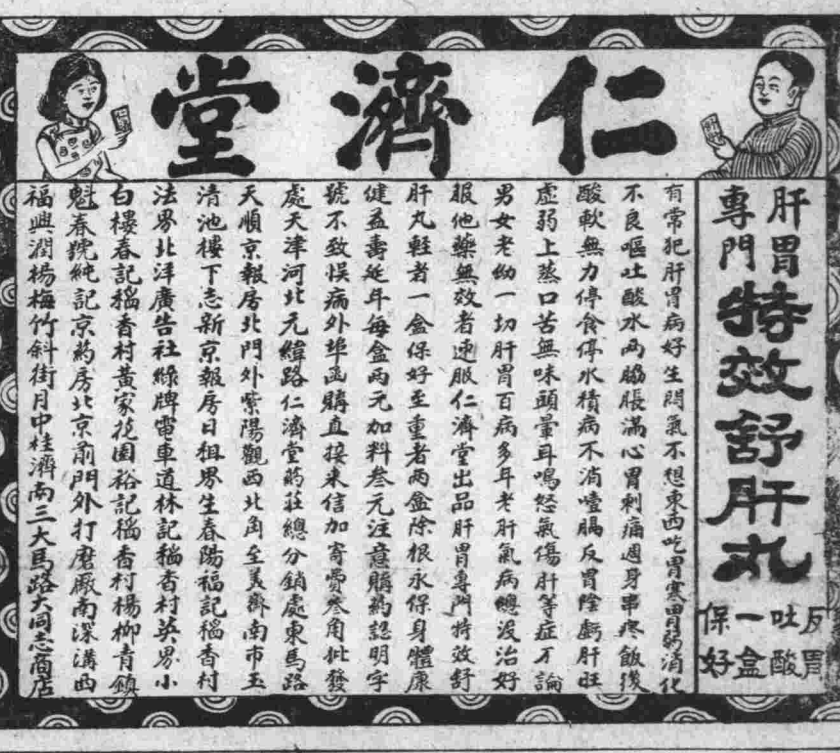 仁濟堂
肝胃
專門
特效舒肝丸
反胃
吐酸
一盒
保好
有常犯肝胃病好生悶氣不想東西吃胃寒胃弱消化
不良嘔吐酸水兩脇脹滿心胃刺痛週身串疼飯後
酸軟無力停食停水積病不消噎膈反胃陰虧肝旺
虛弱上蒸口苦無味頭暈耳鳴怒氣傷肝等症不論
男女老幼一切肝胃百病多年老肝氣病總沒治好
服他藥無效者速服仁濟堂出品肝胃專門特效舒
肝丸輕者一盒保好至重者兩盒除根永保身體康
健益壽延年每盒兩元加料叁元注意購葯認明字
號不致悞病外埠函購直接來信加寄費叁角批發
處天津河北元緯路仁濟堂葯莊總分銷處東馬路
天順京報房北門外紫陽觀西北角至美齋南市玉
清池樓下志新京報房日租界生春陽福記稻香村
法界北洋廣告社綠牌電車道林記稻香村英界小
白樓春記稻香村黃家花園裕記稻香村楊柳青鎮
魁春號純記京葯房北京前門外打磨厰南深溝西
福興潤楊梅竹斜街月中桂濟南三大馬路大同志商店